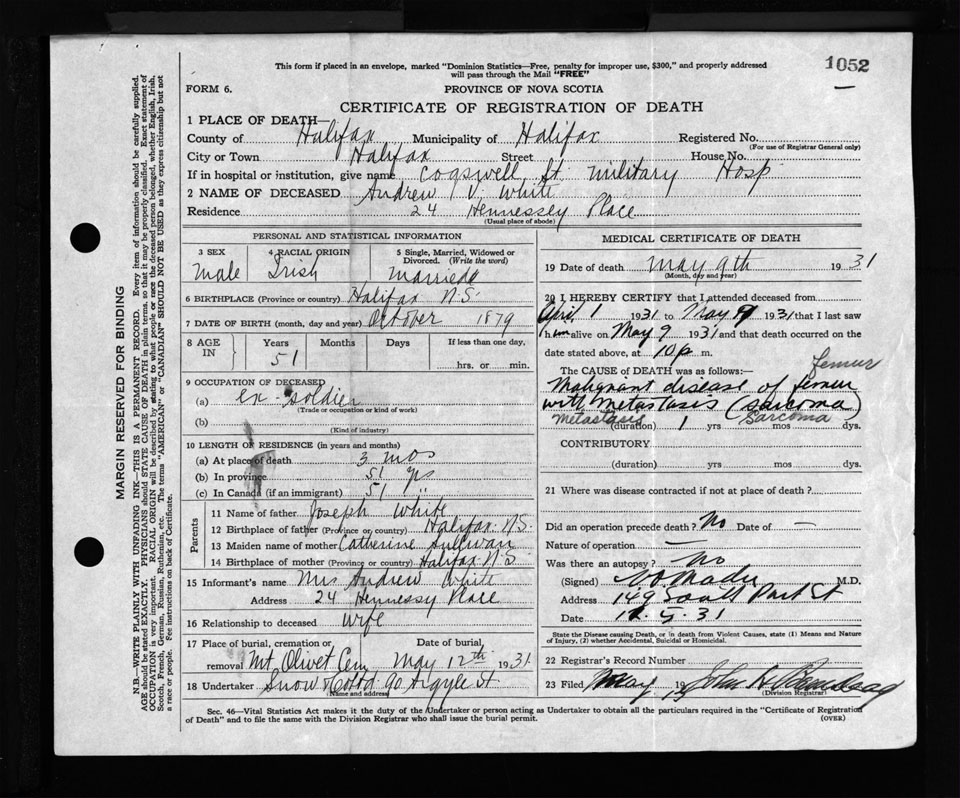 This form if placed in an envelope, marked "Dominion Statistics—Free, penalty for improper use, $300," and properly addressed
will pass through the Mail "FREE"
1052
FORM 6.
PROVINCE OF NOVA SCOTIA
CERTIFICATE OF REGISTRATION OF DEATH
1 PLACE OF DEATH—
County of Halifax Municipality of Halifax Registered No.
(For use of Registrar General only)
City or Town Halifax Street House No.
If in hospital or institution, give name Cogswell St. Military Hosp
2 NAME OF DECEASED Andrew V. White
Residence 24 Hennessey Place
(Usual place of abode)
PERSONAL AND STATISTICAL INFORMATION
3 SEX 4 RACIAL ORIGIN 5 Single, Married, Widowed or
Divorced. (Write the word)
Male Irish Married
6 BIRTHPLACE (Province or country) Halifax N.S.
7 DATE OF BIRTH (month, day and year) October 1879
8 AGE IN Years Months Days If less than one day,
51 hrs. or min.
9 OCCUPATION OF DECEASED
(a) ex-soldier
(Trade or occupation or kind of work)
(b)
(Kind of industry)
10 LENGTH OF RESIDENCE (in years and months)
(a) At place of death 3 mos
(b) In province 51 yrs
(c) In Canada (if an immigrant) 51 "
Parents
11 Name of father Joseph White
12 Birthplace of father (Province or country) Halifax N.S.
13 Maiden name of mother Catherine Sullivan
14 Birthplace of mother (Province or country) Halifax N.S.
15 Informant's name Mrs Andrew White
Address 24 Hennessy Place
16 Relationship to deceased Wife
17 Place of burial, cremation or Date of burial,
removal Mt. Olivet Cem May 12th 1931
18 Undertaker Snow & Co Ltd 90 Argyle St
(Name and address)
MEDICAL CERTIFICATE OF DEATH
19 Date of death May 9th 1931
(Month, day and year)
20 I HEREBY CERTIFY that I attended deceased from
April 1 1931 to May 9 1931 that I last saw
him alive on May 9 1931 and that death occurred on the
date stated above, at 10 p m.
The CAUSE OF DEATH was as follows:— femur
Malignant disease of femur
with Metastasis (sarcoma)
Metastasis Sarcoma
(duration) 1 yrs mos dys.
CONTRIBUTORY
(duration) yrs mos dys.
21 Where was disease contracted if not at place of death?
Did an operation precede death? No Date of —
Nature of operation —
Was there an autopsy? No
(Signed) Mader M.D.
Address 149 South Park St
Date 5. 31
State the Disease causing Death, or in death from Violent Causes, state (1) Means and Nature
of Injury, (2) whether Accidental, Suicidal or Homicidal.
22 Registrar's Record Number
23 Filed May 19 John
(Division Registrar)
Sec. 46—Vital Statistics Act makes it the duty of the Undertaker or person acting as Undertaker to obtain all the particulars required in the "Certificate of Registration
of Death" and to file the same with the Division Registrar who shall issue the burial permit. (OVER)
MARGIN RESERVED FOR BINDING
N.B.—WRITE PLAINLY WITH UNFADING INK—THIS IS A PERMANENT RECORD. Every item of information should be carefully supplied.
AGE should be stated EXACTLY. PHYSICIANS should STATE CAUSE OF DEATH in plain terms, so that it may be properly classified. Exact statement of
OCCUPATION is very important. RACIAL ORIGIN will be described by stating to what people or race the deceased person belonged, whether English, Irish,
Scotch, French, German, Russian, Ruthenian, etc. The terms "AMERICAN" or "CANADIAN" SHOULD NOT BE USED as they express citizenship but not
a race or people. See instructions on back of Certificate.